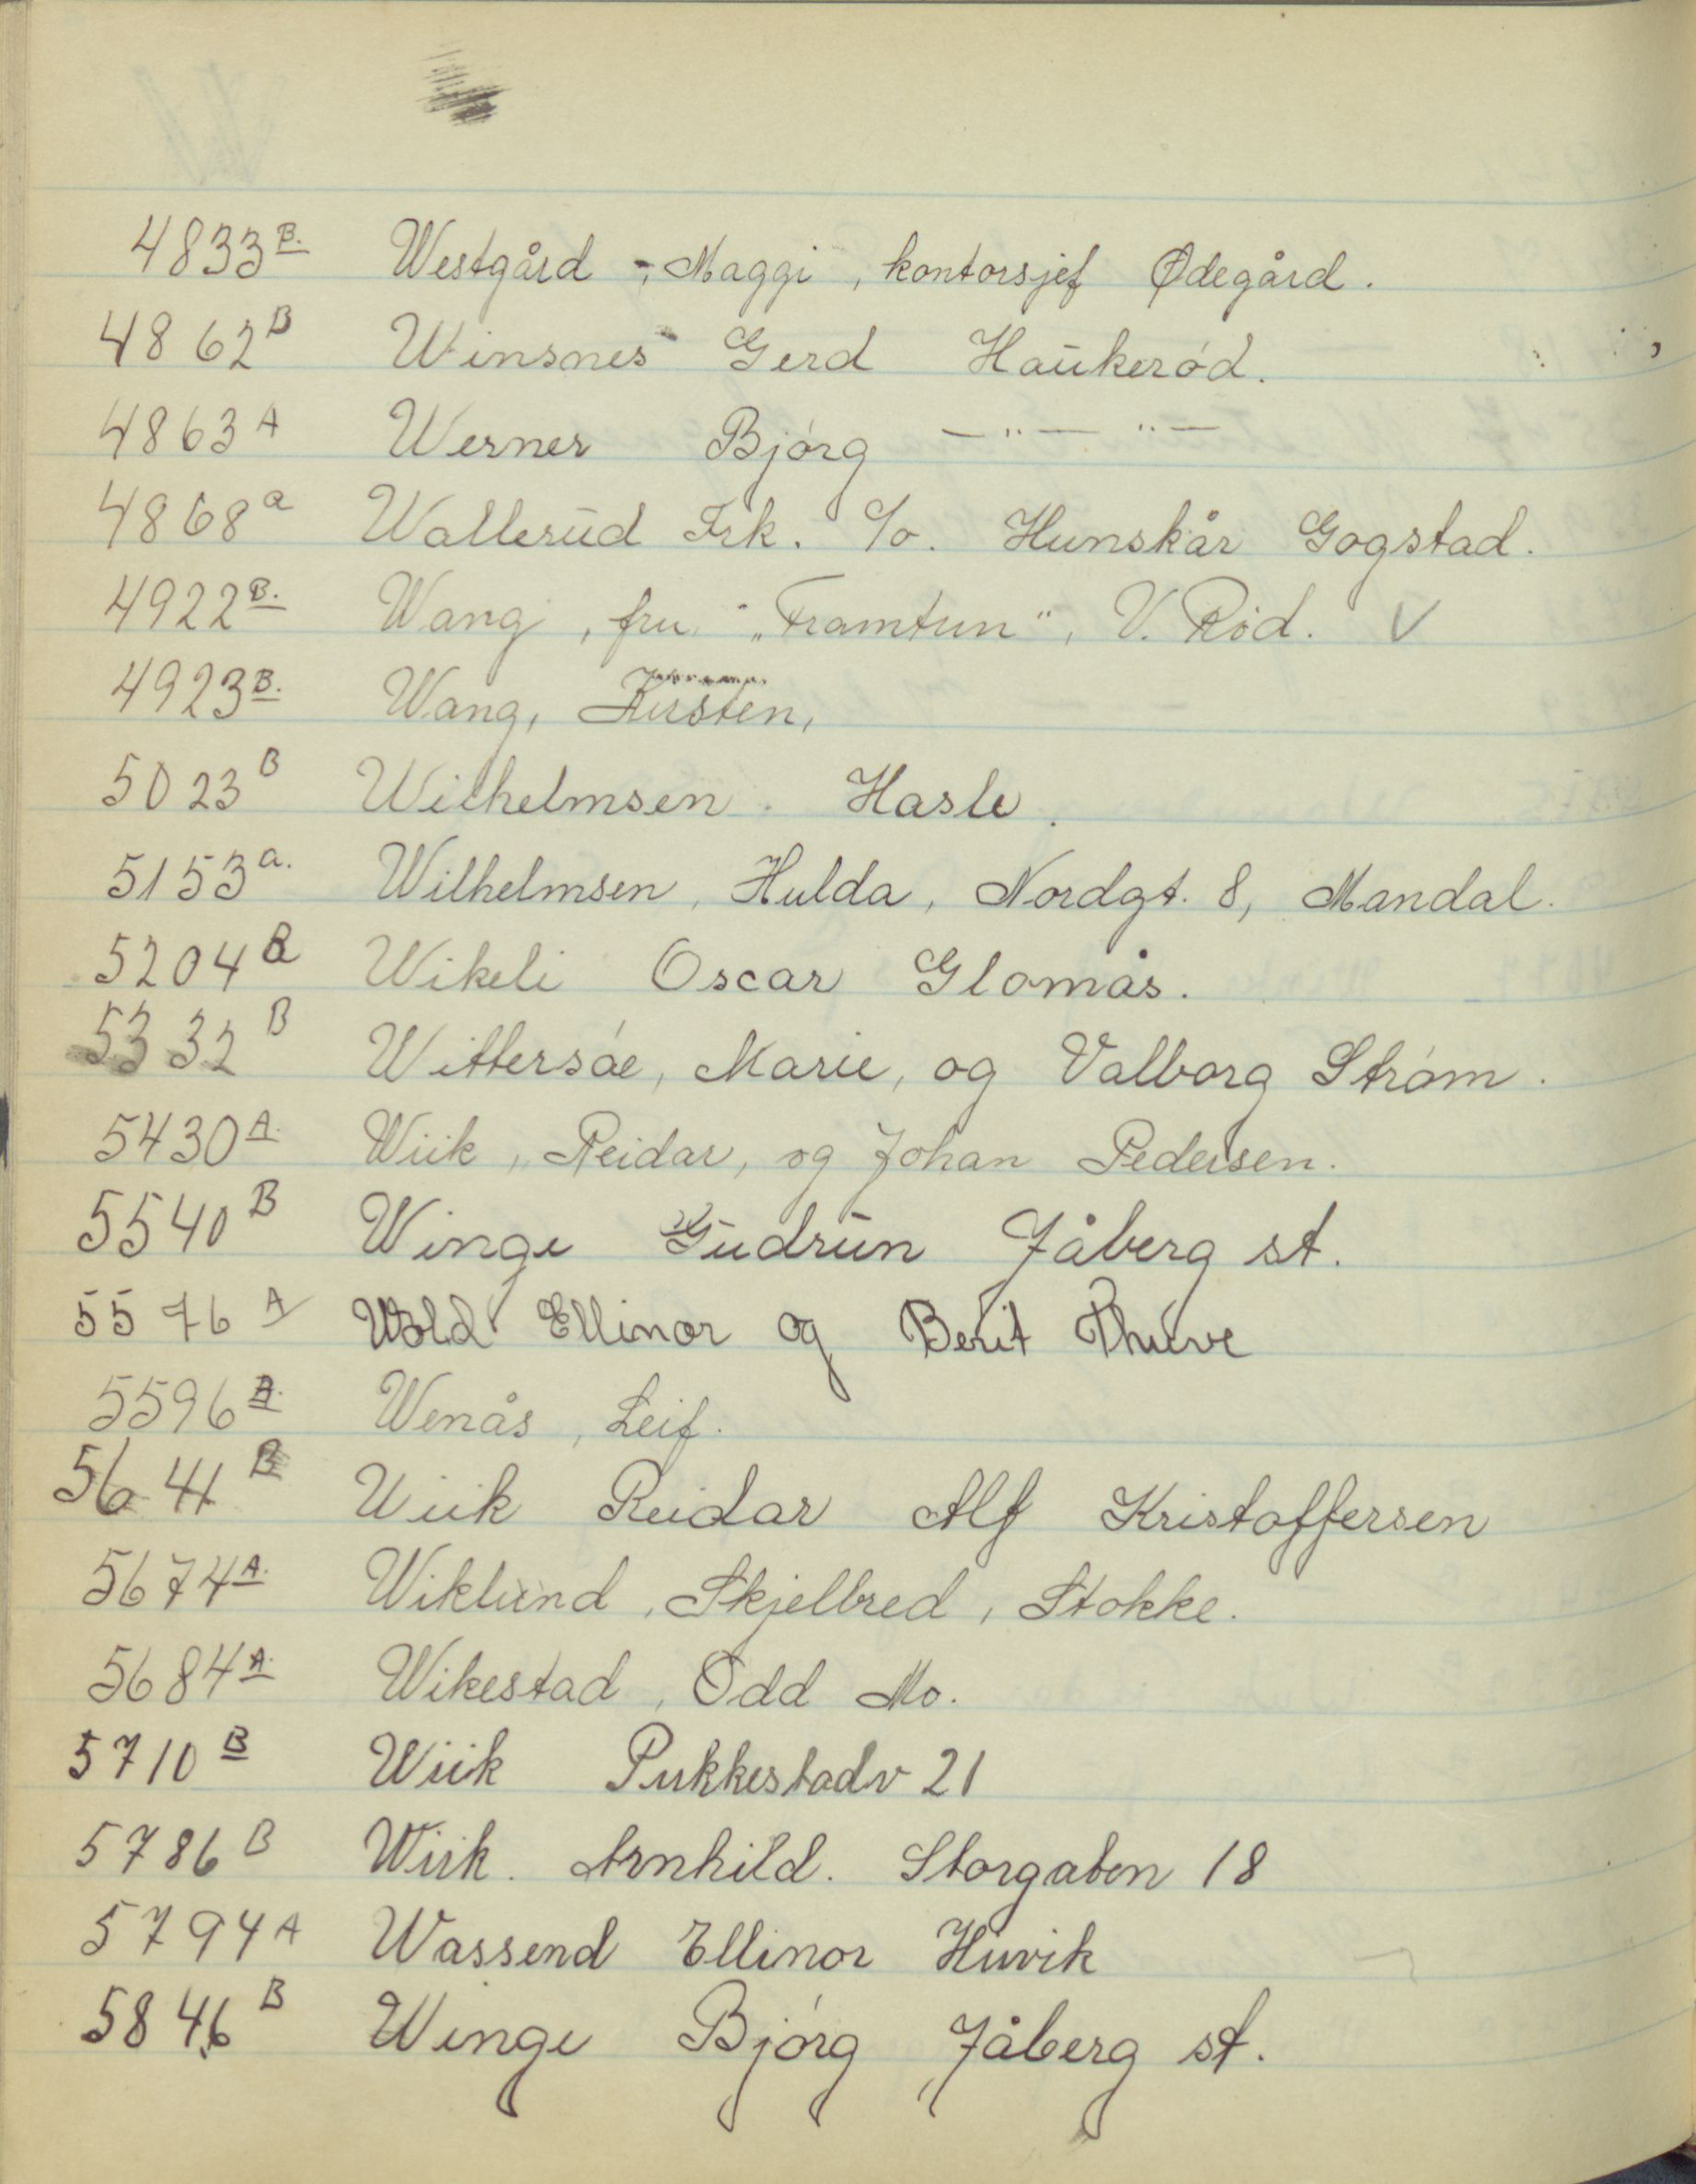 4833 B. Westgård, Maggi, kontorsjef Ødegård.
4862 B Winsnes Gerd Haukerød.
4863 A Werner Bjørg —"— "—
4868 a Wallerud Frk. c/o. Hunskår Gogstad.
4922 B. Wang, fru „Framtun", V. Rød. V
4923 B. Wang, Kirsten,
5023 B Wilhelmsen. Hasle.
5153 a. Wilhelmsen, Hulda, Nordgt. 8, Mandal.
5204 B Wikeli Oscar Glomås.
5332 B Wittersøe, Marie, og Valborg Strøm.
5430 A. Wiik, Reidar, og Johan Pedersen.
5540 B Winge Gudrun Jåberg st.
5576 A Wold Ellinor og Berit Thuve
5596 B. Wenås, Leif.
5641 B Wiik Reidar Alf Kristoffersen
5674 A. Wiklund, Skjelbred, Stokke.
5684 A. Wikestad, Odd Mo.
5710 B Wiik Pukkestadv 21
5786 B Wiik. Arnhild. Storgaten 18
5794 A Wassend Ellinor Huvik
5846 B Winge Bjørg Jåberg st.